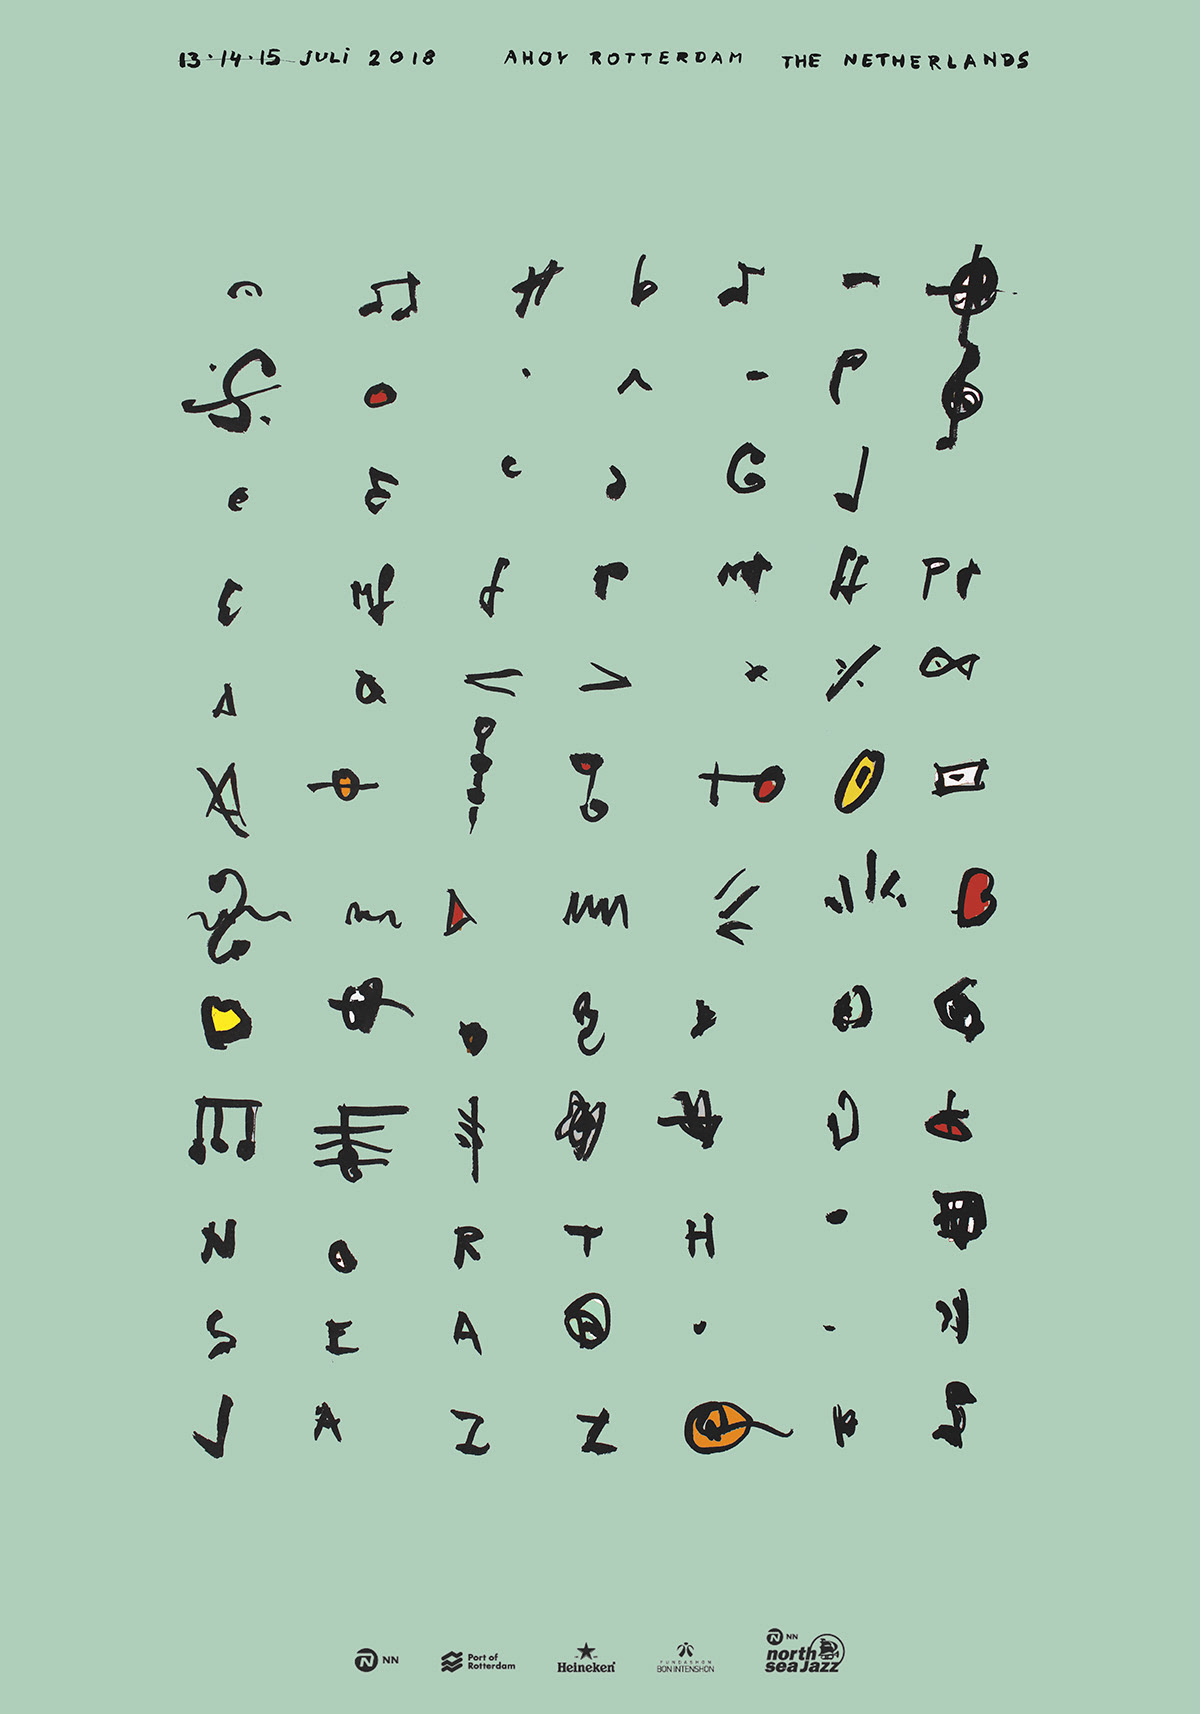 13·14·15 JULi 2018 AHOY ROTTERDAM THE NETHERLANDS
mf
ff
NORTH
SEA
JAZZ
NN
Port of
Rotterdam
Heineken
FUNDASHON
BON INTENSHON
NN
north
sea Jazz